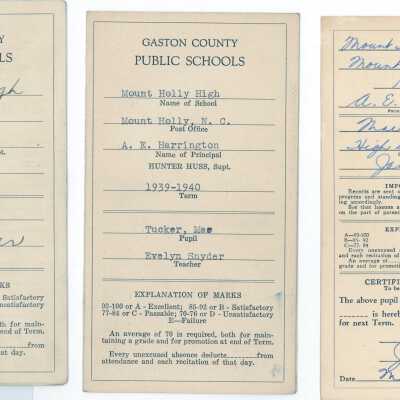 TY
LS
Satisfactory
Unsatisfactory
both for main-
end of Term.
from
of that day.
GASTON COUNTY
PUBLIC SCHOOLS
Mount Holly High
Name of School
Mount Holly, N. C.
Post Office
A. E. Harrington
Name of Principal
HUNTER HUSS, Supt.
1939-1940
Term
Tucker, Mae
Pupil
Evelyn Snyder
Teacher
EXPLANATION OF MARKS
93-100 or A - Excellent; 85-92 or B - Satisfactory
77-84 or C - Passable; 70-76 or D - Unsatisfactory
E—Failure
An average of 76 is required, both for main-
taining a grade and for promotion at end of Term.
Every unexcused absence deducts from
attendance and each recitation of that day.
Mount
Mount
A. E.
Mae
High
IMPO
Records are sent
progress and standing
ing accordingly.
See that lessons a
on the part of parent
EXP
A—93-100
B—85- 92
C—77- 84
and each recitation of
An average of
grade and for promotion
CERTIFIC
To be
The above pupil
is here
for next Term.
Date